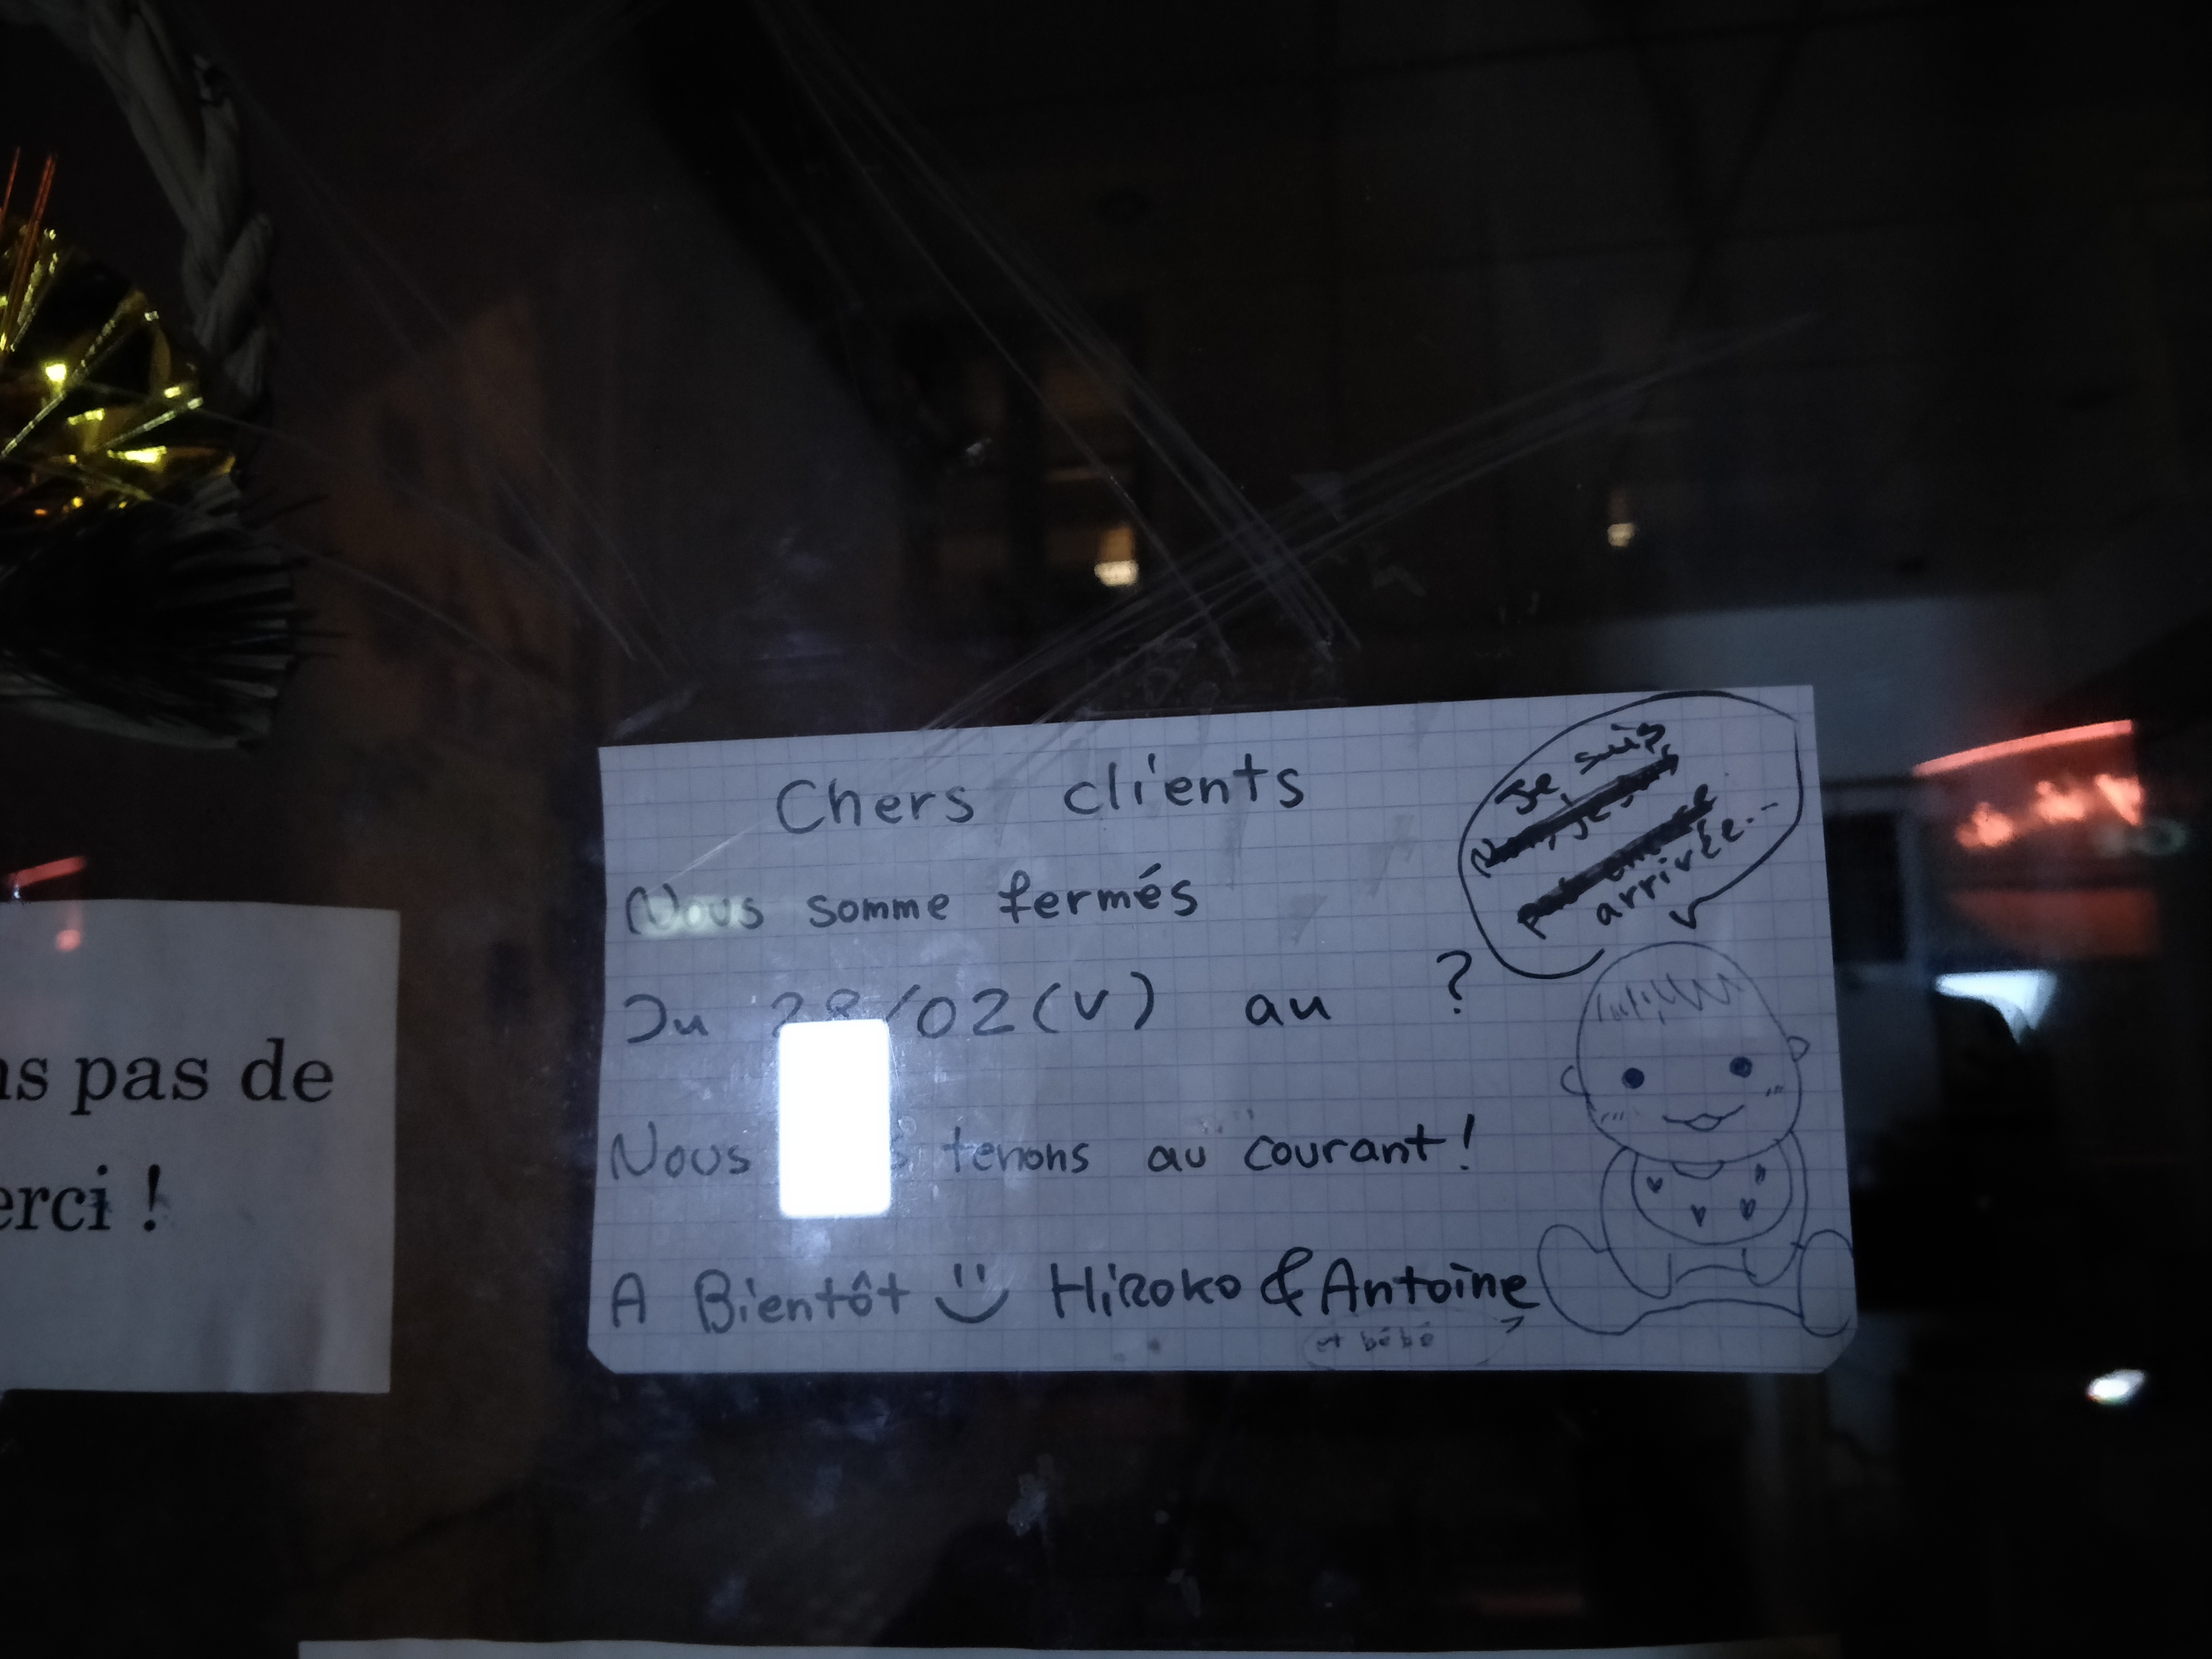 Chers clients
Nous somme fermés
Du 28/02(V) au ?
Nous tenons au courant!
A Bientôt Hiroko & Antoine
et bébé
Je suis
arrivée...
ns pas de
erci !